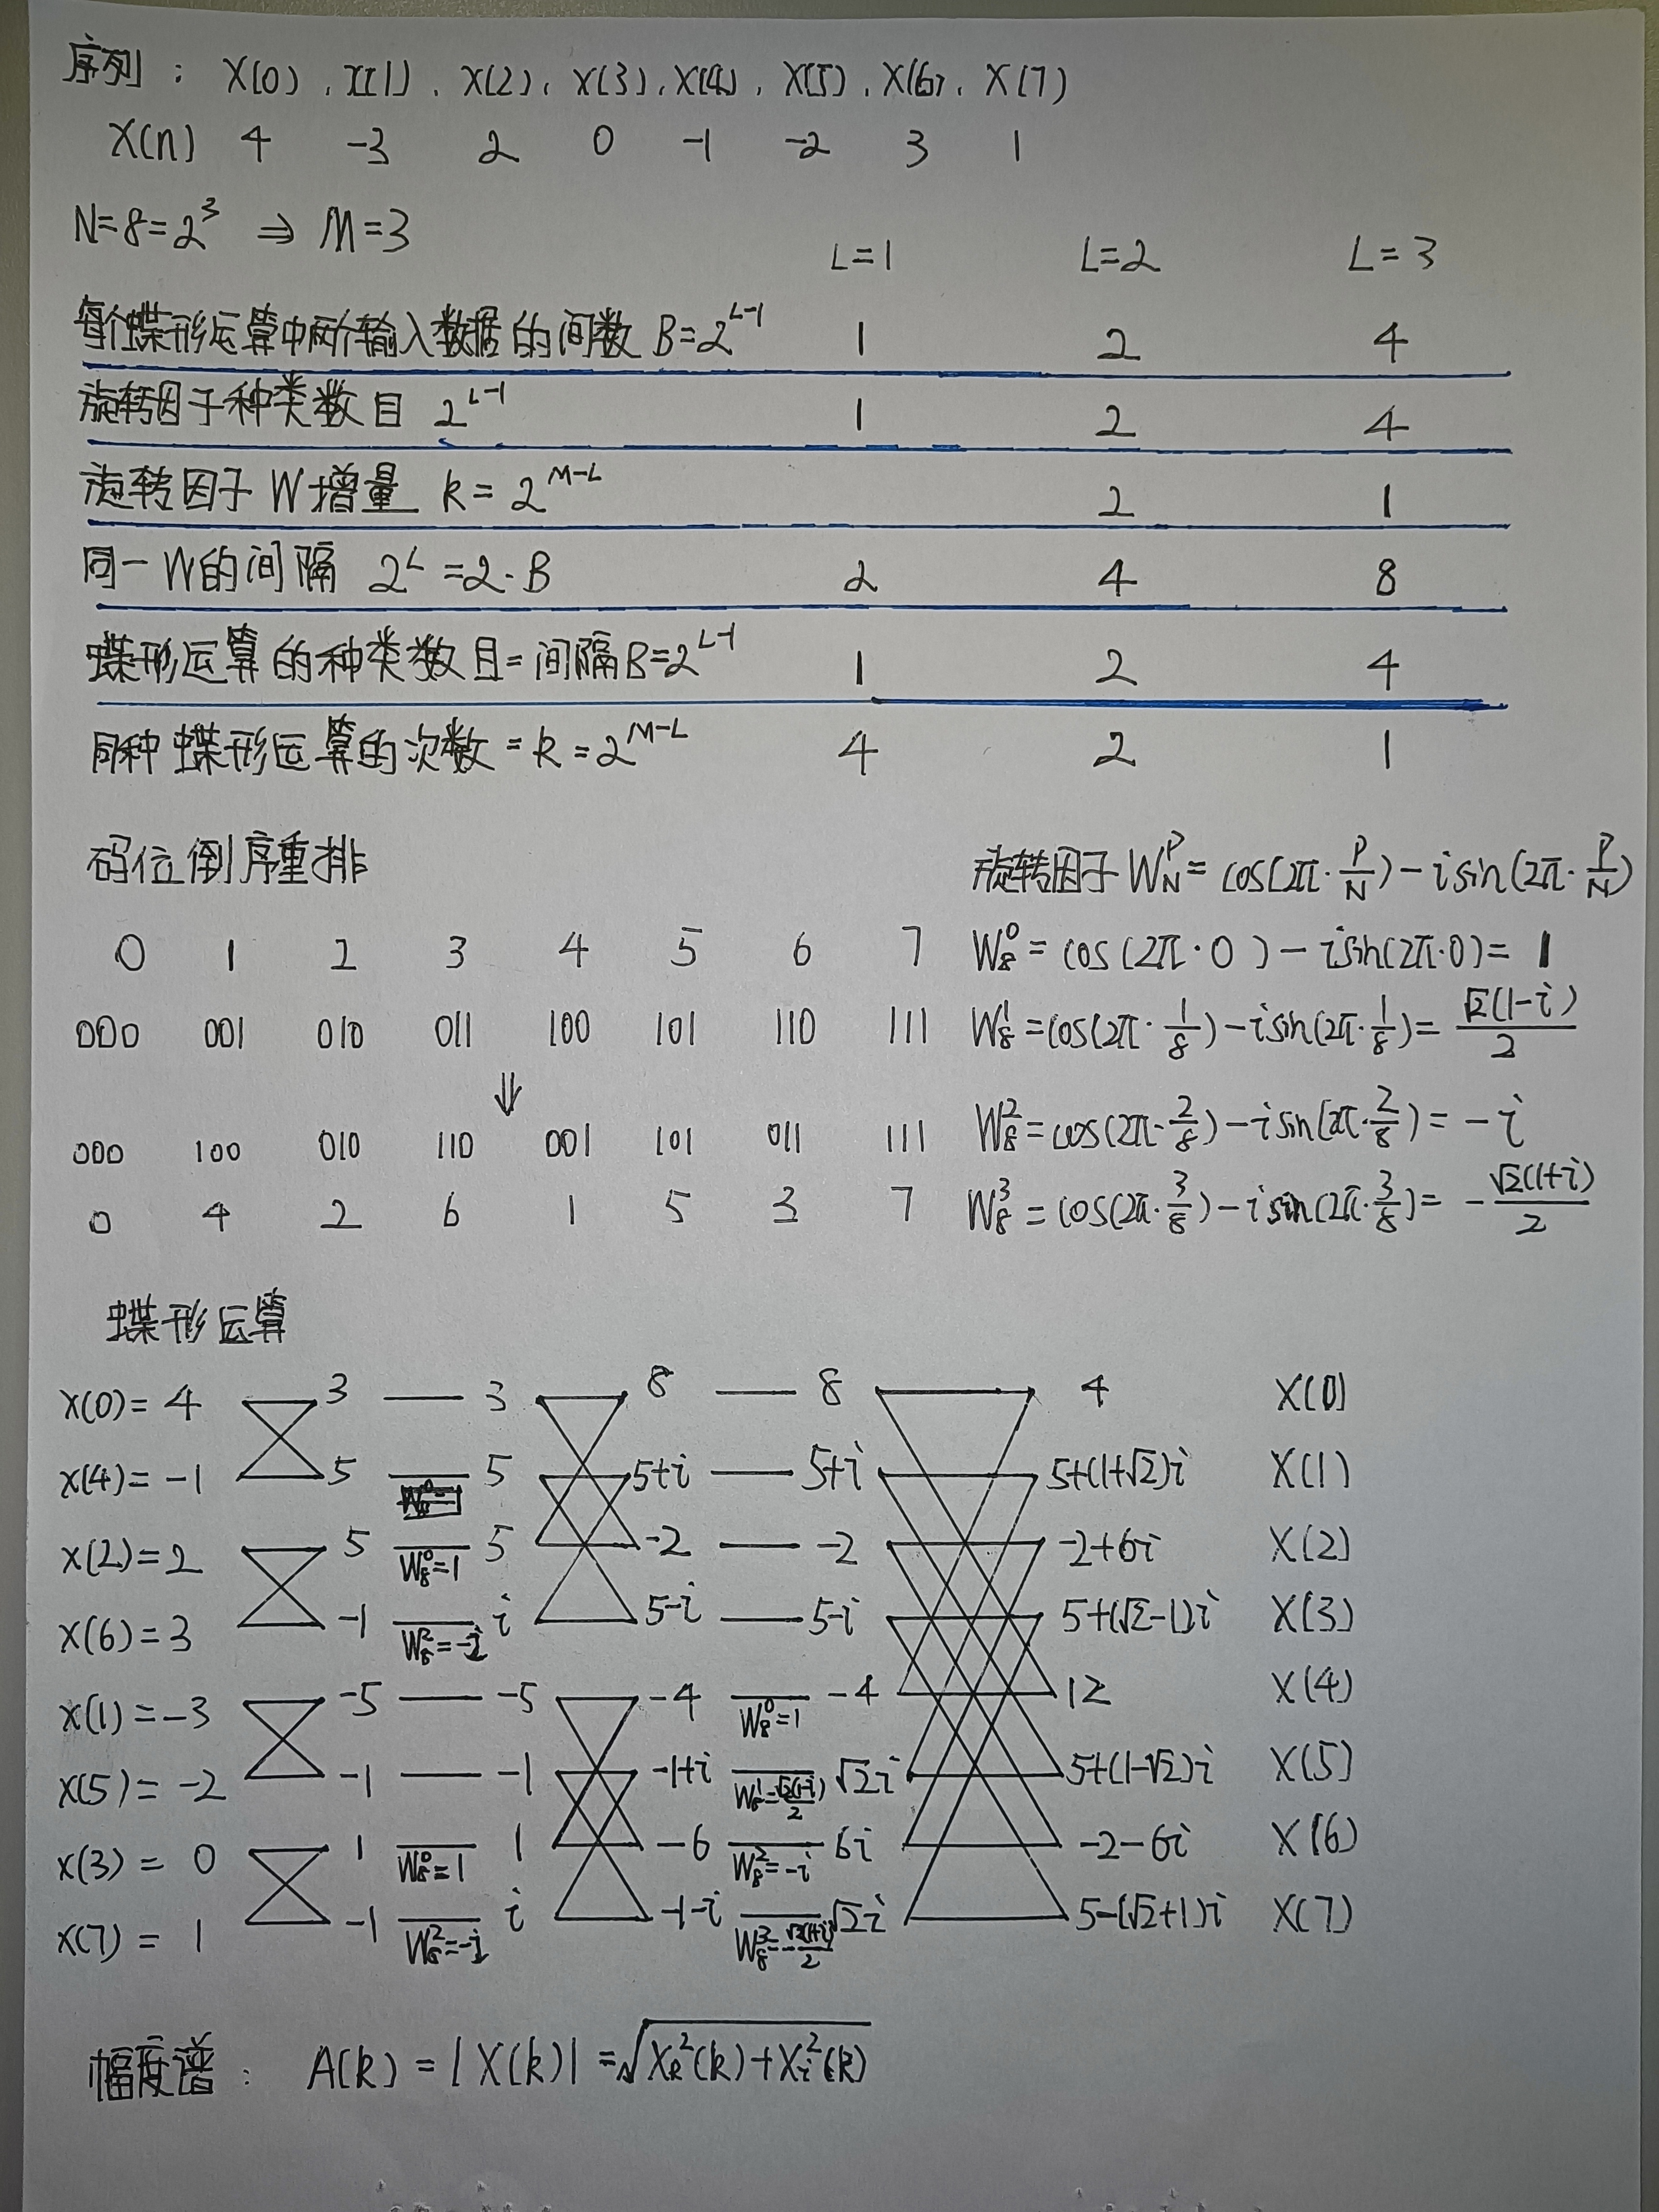 序列：X(0)，X(1)，X(2)，X(3)，X(4)，X(5)，X(6)，X(7)
X(n) 4 -3 2 0 -1 -2 3 1
N=8=2³ ⇒ M=3
L=1 L=2 L=3
每个蝶形运算中两个输入数据的间数 B=2^(L-1) 1 2 4
旋转因子种类数目 2^(L-1) 1 2 4
旋转因子 W 增量 k=2^(M-L) 2 1
同一W的间隔 2^L=2·B 2 4 8
蝶形运算的种类数目=间隔B=2^(L-1) 1 2 4
同种蝶形运算的次数=k=2^(M-L) 4 2 1
码位倒序重排
0 1 2 3 4 5 6 7
000 001 010 011 100 101 110 111
⇓
000 100 010 110 001 101 011 111
0 4 2 6 1 5 3 7
旋转因子 W_N^P=cos(2π·P/N)-i sin(2π·P/N)
W_8^0=cos(2π·0)-isin(2π·0)=1
W_8^1=cos(2π·1/8)-isin(2π·1/8)=√2(1-i)/2
W_8^2=cos(2π·2/8)-isin(2π·2/8)=-i
W_8^3=cos(2π·3/8)-isin(2π·3/8)=-√2(1+i)/2
蝶形运算
X(0)=4 3 — 3 8 — 8 4 X(0)
X(4)=-1 5 — 5 5+i — 5+i 5+(1+√2)i X(1)
X(2)=2 5 W_8^0=1 5 -2 — -2 -2+6i X(2)
X(6)=3 -1 W_8^2=-i i 5-i — 5-i 5+(√2-1)i X(3)
X(1)=-3 -5 — -5 -4 W_8^0=1 -4 12 X(4)
X(5)=-2 -1 — -1 -1+i W_8^1=√2(1-i)/2 √2i 5+(1-√2)i X(5)
X(3)=0 1 W_8^0=1 1 -6 W_8^2=-i 6i -2-6i X(6)
X(7)=1 -1 W_8^2=-i i -1-i W_8^3=-√2(1+i)/2 √2i 5-(√2+1)i X(7)
幅度谱：A(k)=|X(k)|=√(X_R²(k)+X_i²(k))